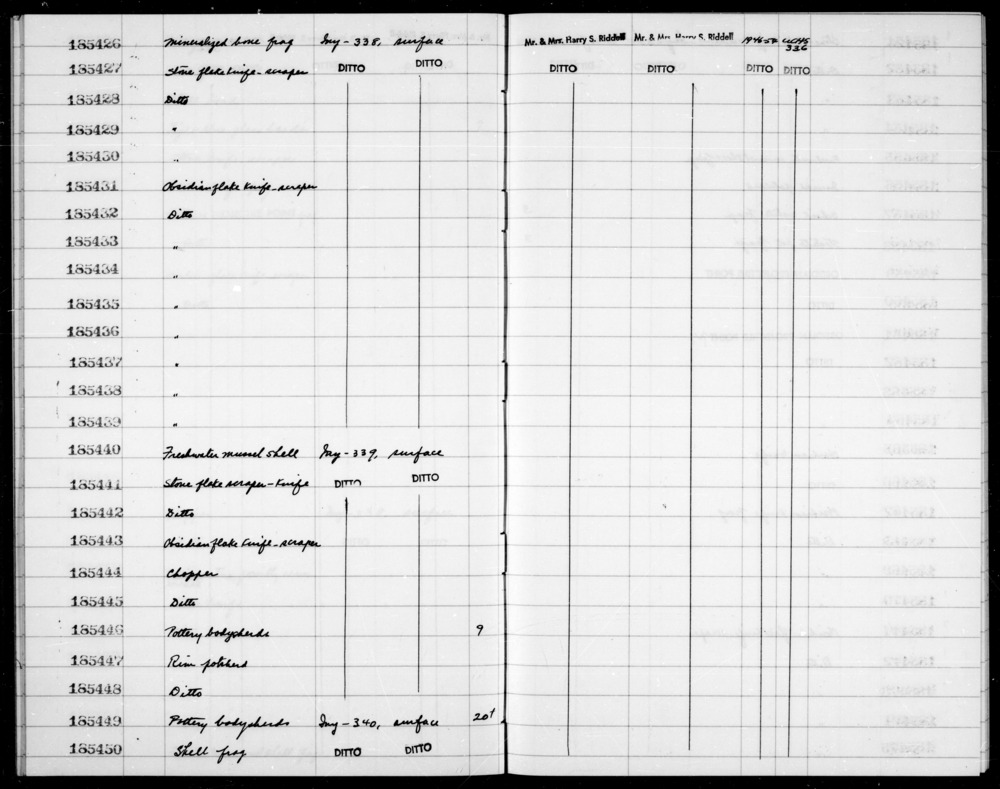 185426 Mineralized bone frag Iny-338, surface Mr. & Mrs. Harry S. Riddell Mr. & Mrs. Harry S. Riddell 336
185427 Stone flake knife-scraper DITTO DITTO DITTO DITTO DITTO DITTO
185428 Ditto
185429 "
185430 "
185431 Obsidian flake knife-scraper
185432 Ditto
185433 "
185434 "
185435 "
185436 "
185437 "
185438 "
185439 "
185440 Freshwater mussel shell Iny-339, surface
185441 Stone flake scraper-knife DITTO DITTO
185442 Ditto
185443 Obsidian flake knife-scraper
185444 Chopper
185445 Ditto
185446 Pottery bodysherds 9
185447 Rim potsherd
185448 Ditto
185449 Pottery bodysherds Iny-340, surface 20+
185450 Shell frag DITTO DITTO